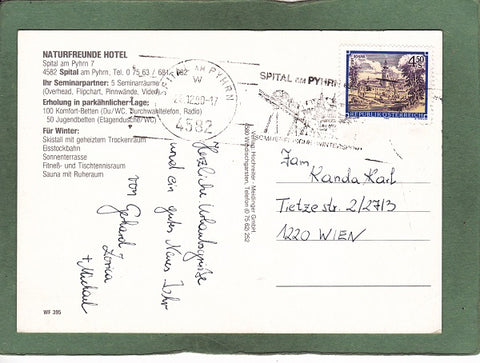 NATURFREUNDE HOTEL
Spital am Pyhrn 7
4582 Spital am Pyhrn, Tel. 0 75 63 / 681, 682
Ihr Seminarpartner: 5 Seminarräume
(Overhead, Flipchart, Pinnwände, Video)
Erholung in parkähnlicher Lage:
100 Komfort-Betten (Du/WC, Durchwahltelefon, Radio)
50 Jugendbetten (Etagendusche/WC)
Für Winter:
Skistall mit geheiztem Trockenraum
Eisstockbahn
Sonnenterrasse
Fitneß- und Tischtennisraum
Sauna mit Ruheraum
WF 395
SPITAL AM PYHRN
90-17
4582
SPITAL am PYHRN
4.50
REPUBLIK ÖSTERREICH
Herzliche Urlaubsgrüße
und ein gutes Neues Jahr
von Gerhard
Zorica
+ Michael
Verlag: Hochreiter - Meidinger GmbH
4580 Windischgarsten, Telefon (0 75 62) 252
Fam
Kanda Karl
Tietze str. 2/27/3
1220 WIEN